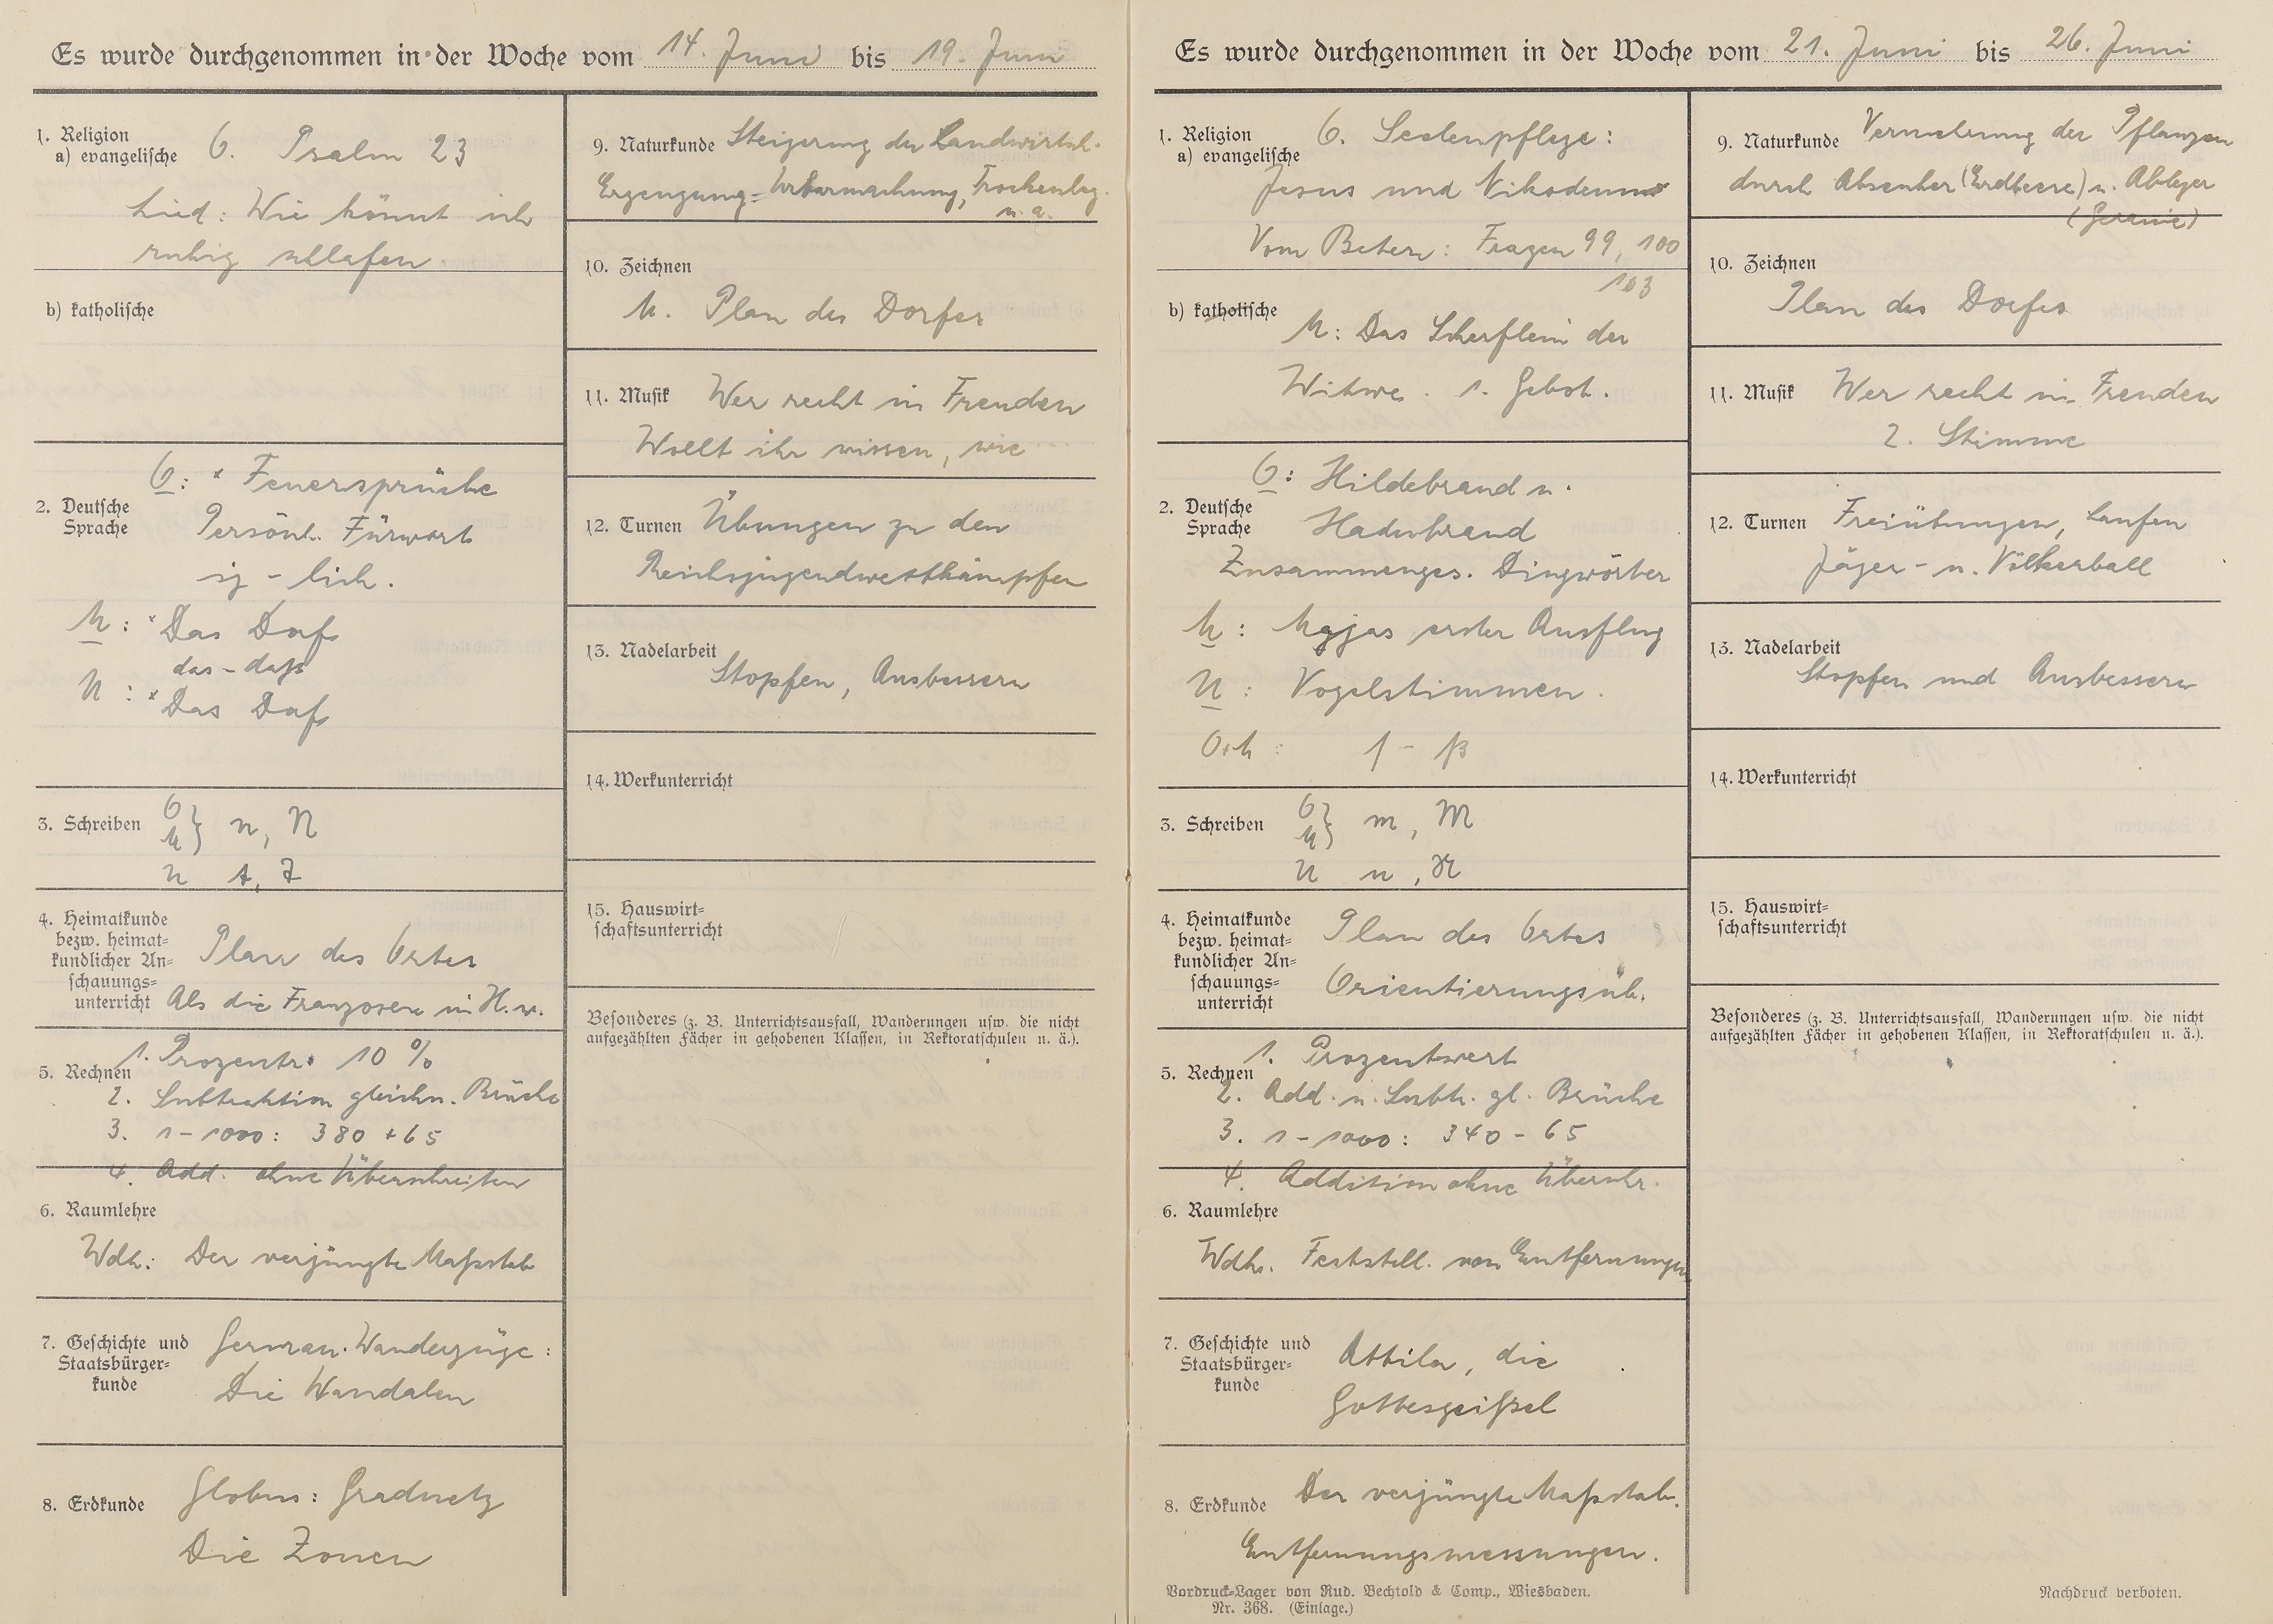 Es wurde durchgenommen in der Woche vom 14. Juni bis 19. Juni
1. Religion
a) evangelische O. Psalm 23
Lied: Wie könnt ich
ruhig schlafen
b) katholische
O: * Feuersprüche
2. Deutsche
Sprache
Persönl. Fürwort
ig - lich.
M: * Das Dorf
das - daß
U: * Das Dorf
3. Schreiben O} M} n, N
U
4. Heimatkunde
bezw. heimat-
kundlicher An-
schauungs-
unterricht
Plan des Ortes
Als die Franzosen in H. w.
5. Rechnen
1. Prozentr. 10 %
2. Subtraktion gleichn. Brüche
3. 1-1000: 380 + 65
4. Add. ohne Überschreiten
6. Raumlehre
Wdh.: Der verjüngte Maßstab
7. Geschichte und
Staatsbürger-
kunde
German. Wanderzüge:
Die Wandalen
8. Erdkunde
Globus: Gradnetz
Die Zonen
9. Naturkunde Steigerung der Landwirtsch.
Erzeugung - Urbarmachung, Trockenleg.
u. a.
10. Zeichnen
M. Plan des Dorfes
11. Musik Wer recht in Freuden
Wollt ihr wissen, wie
12. Turnen Übungen zu den
Reichsjugendwettkämpfen
13. Nadelarbeit
Stopfen, Ausbessern
14. Werkunterricht
15. Hauswirt-
schaftsunterricht
Besonderes (z. B. Unterrichtsausfall, Wanderungen usw. die nicht
aufgezählten Fächer in gehobenen Klassen, in Rektoratschulen u. ä.).
Es wurde durchgenommen in der Woche vom 21. Juni bis 26. Juni
1. Religion
a) evangelische O. Seelenpflege:
Jesus und Nikodemus
Vom Beten: Fragen 99, 100
103
b) katholische
M: Das Scherflein der
Witwe. 1. Gebot.
O: Hildebrand u.
2. Deutsche
Sprache
Hadubrand
Zusammenges. Dingwörter
M: Majas erster Ausflug
U: Vogelstimmen.
Orth: f - ß
3. Schreiben O} M} m, M
U n, N
4. Heimatkunde
bezw. heimat-
kundlicher An-
schauungs-
unterricht
Plan des Ortes
Orientierungsüb.
5. Rechnen
1. Prozentwert
2. Add. u. Subtr. gl. Brüche
3. 1-1000: 340 - 65
4. Addition ohne Überschr.
6. Raumlehre
Wdh. Feststell. von Entfernungen
7. Geschichte und
Staatsbürger-
kunde
Attila, die
Gottesgeißel
8. Erdkunde
Der verjüngte Maßstab.
Entfernungsmessungen.
Vordruck-Lager von Rud. Bechtold & Comp., Wiesbaden.
Nr. 368. (Einlage.)
9. Naturkunde Vermehrung der Pflanzen
durch Absenker (Erdbeere) u. Ableger
(Geranie)
10. Zeichnen
Plan des Dorfes
11. Musik Wer recht in Freuden
2. Stimme
12. Turnen Freiübungen, Laufen
Jäger- u. Völkerball
13. Nadelarbeit
Stopfen und Ausbessern
14. Werkunterricht
15. Hauswirt-
schaftsunterricht
Besonderes (z. B. Unterrichtsausfall, Wanderungen usw. die nicht
aufgezählten Fächer in gehobenen Klassen, in Rektoratschulen u. ä.).
Nachdruck verboten.